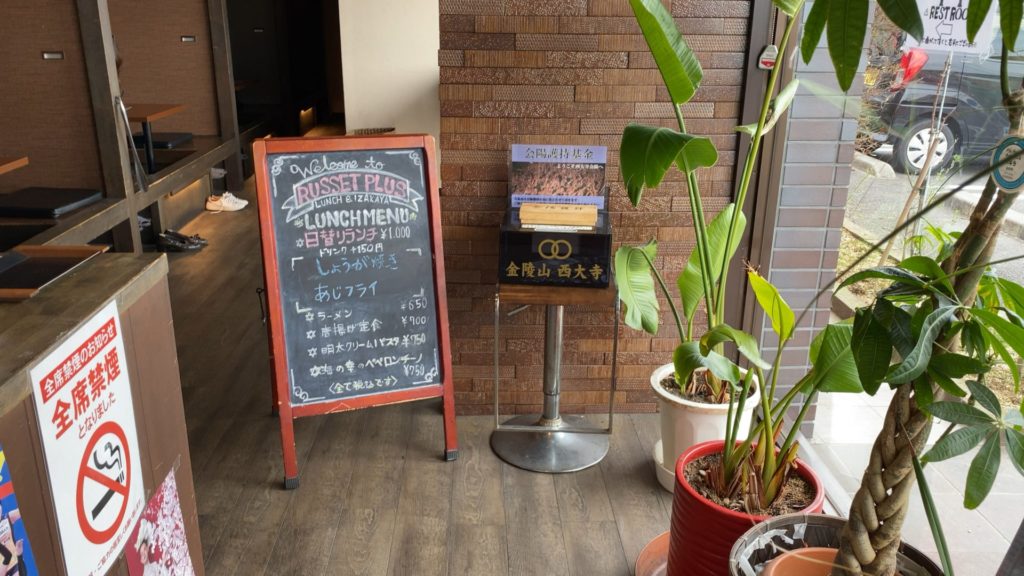 Welcome to
RUSSET PLUS
LUNCH & IZAKAYA
LUNCH MENU
日替リランチ ¥1,000
ドリンク +150円
しょうが焼き
あじフライ
ラーメン ¥650
唐揚げ定食 ¥900
明太クリームパスタ ¥750
海の幸のペペロンチーノ
¥750
〈全て税込です〉
会陽護持基金
金陵山 西大寺
全席禁煙のお知らせ
全席禁煙
となりました
REST ROOM